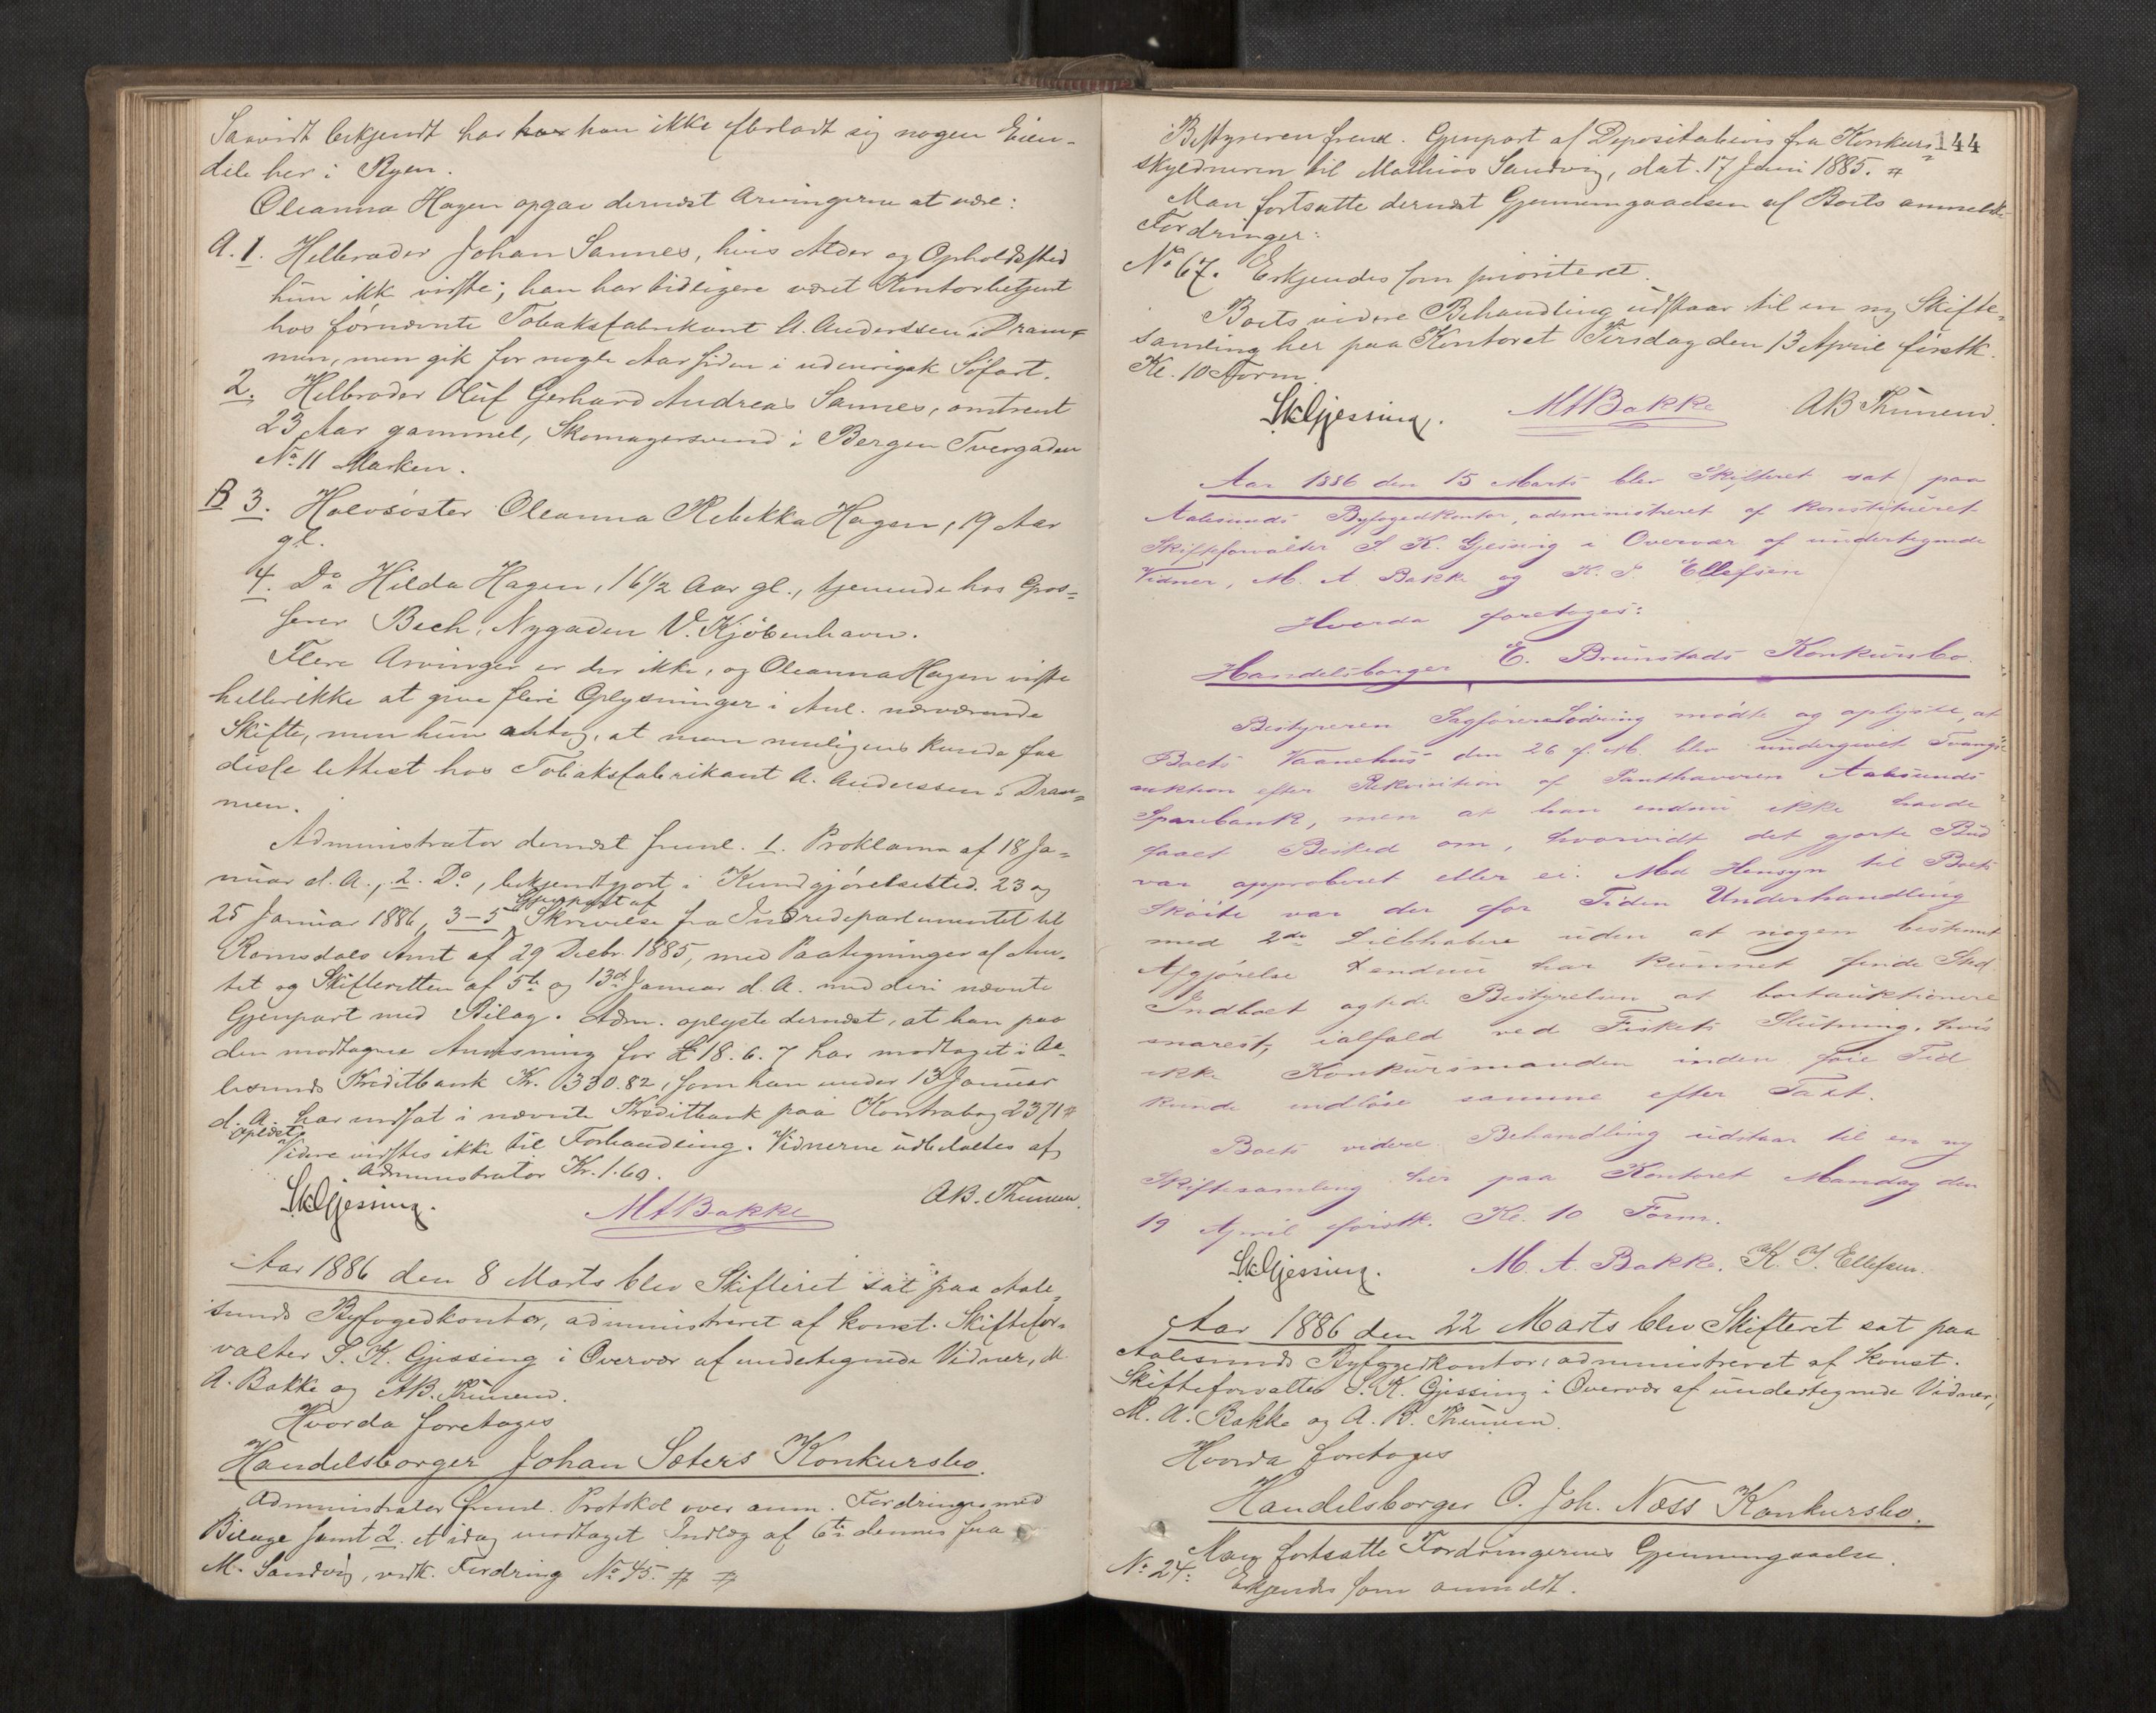 Saavidt bekjendt har han ikke efterladt sig nogen Eien-
dele her i Byen.
Oleanna Hagen opgav dernæst Arvingerne at være:
A. 1. Helbroder Johan Sannes, hvis Alder og Opholdssted
hun ikk vidste; han har tidligere været Kontorbetjent
hos førnævnte Tobaksfabrikant A. Anderssen i Dram-
men, men gik for nogle Aar siden i udenrigsk Søfart.
2. Helbroder Oluf Gerhard Andreas Sannes, omtrent
23 Aar gammel, Skomagersvend i Bergen Tvergaden
No. 11 Marken.
B 3. Halvsøster Oleanna Rebekka Hagen, 19 Aar
gl.
4. Do Hilda Hagen, 16 1/2 Aar gl., tjenende hos Gros-
serer Bech, Nygaden V. Kjøbenhavn.
Flere Arvinger er der ikke, og Oleanna Hagen vidste
hellerikke at give flere Oplysninger i Anl. nærværende
Skifte, men hun antog, at man muligens kunde faa
disse lettest hos Tobaksfabrikant A. Anderssen i Dram-
men.
Administrator dernæst freml. 1. Proklama af 18 Ja-
nuar d. A., 2. Do, bekjendtgjort i Kundgjørelsestid. 23 og
Gjenpart af
25 Januar 1886, 3-5 Skrivelse fra Indredepartementet til
Romsdals Amt af 29 Decbr. 1885, med Paategninger af Am-
tet og Skifteretten af 5te og 13de Januar d. A. med deri nævnte
Gjenpart med Bilag. Adm. oplyste dernæst, at han paa
den modtagne Anvisning for £ 18. 6. 7 har modtaget i Aa-
lesunds Kreditbank Kr. 330.82, som han under 13 Januar
d. A. har indsat i nævnte Kreditbank paa Kontrabog 2371 #
Oplæst
Videre vidstes ikke til Forhandling. Vidnerne udbetaltes af
Administrator Kr. 1.60.
S.K. Gjessing. M A Bakke A B. Thunem.
Aar 1886 den 8 Marts blev Skifteret sat paa Aale-
sunds Byfogedkontor, administreret af konst. Skiftefor-
valter S. K. Gjessing i Overvær af undertegnede Vidner, M.
A. Bakke og A B. Thunem.
Hvorda foretoges
Handelsborger Johan Sæters Konkursbo.
Administrator freml. Protokol over anm. Fordringer med
Bilage samt 2. et idag modtaget Indlæg af 6te dennes fra
M. Sandvig, vedk. Fordring No. 45. # #
144
Bestyreren freml. Gjenpart af Depositabevis fra Konkurs-
skyldneren til Mathias Sandvig, dat. 17 Juni 1885. #
Man fortsatte dernæst Gjennemgaaelsen af Boets anmeldte
Fordringer:
No. 67. Erkjendes som prioriteret.
Boets videre Behandling udstaar til en ny Skifte-
samling her paa Kontoret Tirsdag den 13 April førstk.
Kl. 10 Form.
S.K. Gjessing. M A Bakke A B Thunem.
Aar 1886 den 15 Marts blev Skifteret sat paa
Aalesunds Byfogedkontor, administreret af konstitueret
Skifteforvalter S. K. Gjessing i Overvær af undertegnede
Vidner, M. A. Bakke og K. J. Ellefsen
Hvorda foretoges:
Handelsborger E. Brunstads Konkursbo.
Bestyreren Sagfører Lødning mødte og oplyste, at
Boets Vaanehus den 26 f. M. blev undergivet Tvangs-
auktion efter Rekvisition af Panthaveren Aalesunds
Sparebank, men at han endnu ikke havde
faaet Besked om, hvorvidt det gjorte Bud
var approberet eller ei. Med Hensyn til Boets
Skøite var der for Tiden Underhandling
med 2de Liebhabere uden at nogen bestemt
Afgjørelse endnu har kunnet finde Sted
Indboet agtede Bestyrelsen at bortauktionere
snarest, ialfald ved Fiskets Slutning, hvis
ikke Konkursmanden inden føie Tid
kunde indløse samme efter Taxt.
Boets videre Behandling udstaar til en ny
Skiftesamling her paa Kontoret Mandag den
19 April førstk. Kl. 10 Form.
S.K. Gjessing. M. A. Bakke. K. J. Ellefsen.
Aar 1886 den 22 Marts blev Skifteret sat paa
Aalesunds Byfogedkontor, administreret af konst.
Skifteforvalter S. K. Gjessing i Overvær af undertegnede Vidner,
M. A. Bakke og A. B. Thunem.
Hvorda foretoges
Handelsborger O. Joh. Næss Konkursbo.
Man fortsatte Fordringernes Gjennemgaaelse.
No. 24: Erkjendes som anmeldt.